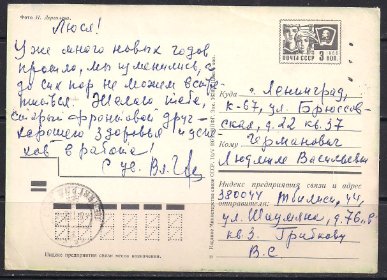 Фото Н.
Люся!
Уже много новых годов
прошло, мы изменились, а
до сих пор не можем встре-
титься. Желаю тебе,
старый фронтовой друг
хорошего здоровья и успе-
хов в работе!
С ув. Вл.
ПОЧТА СССР 3 КОП.
Куда Ленинград,
К-67, ул. Брюссов-
ская, д. 22 кв. 37
Кому
Людмиле Васильевне
Индекс предприятия связи и адрес
отправителя: 380044 Тбилиси, 44,
ул. Шаумяна, д. 76.
кв 3 Грибков
В. С.
Индекс предприятия связи места назначения.